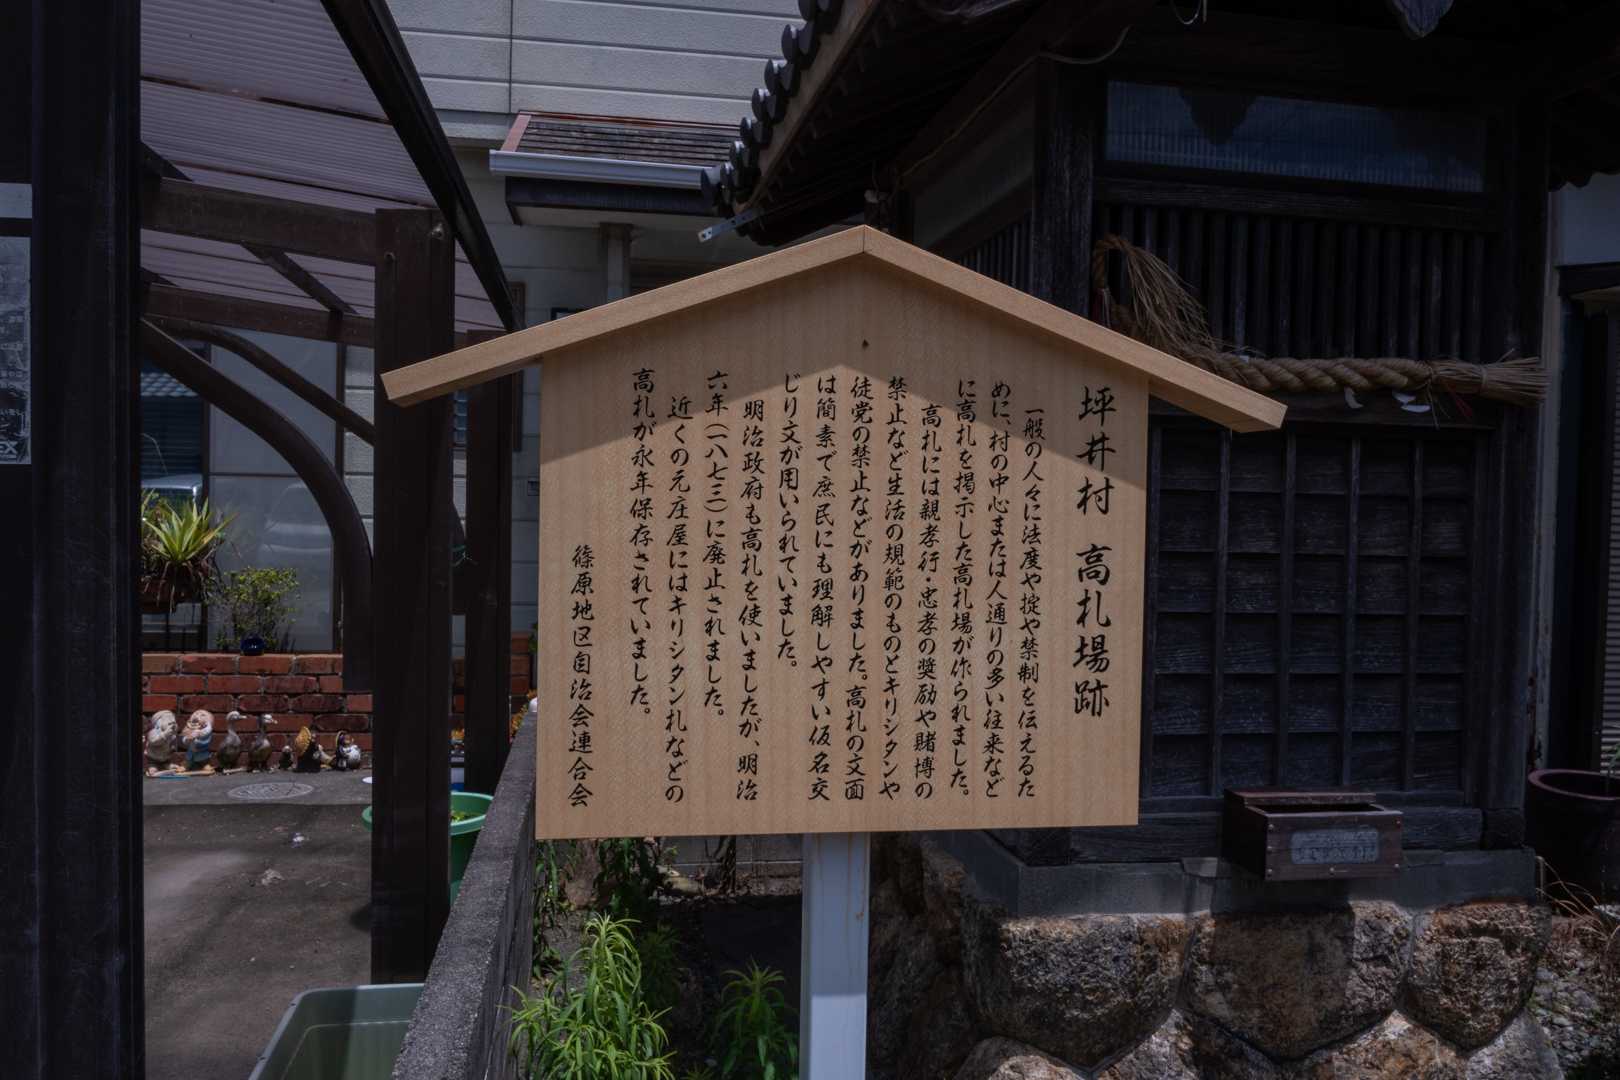 坪井村　高札場跡
一般の人々に法度や掟や禁制を伝えるた
めに、村の中心または人通りの多い往来など
に高札を掲示した高札場が作られました。
高札には親孝行・忠孝の奨励や賭博の
禁止など生活の規範のものとキリシタンや
徒党の禁止などがありました。高札の文面
は簡素で庶民にも理解しやすい仮名交
じり文が用いられていました。
明治政府も高札を使いましたが、明治
六年（一八七三）に廃止されました。
近くの元庄屋にはキリシタン札などの
高札が永年保存されていました。
篠原地区自治会連合会